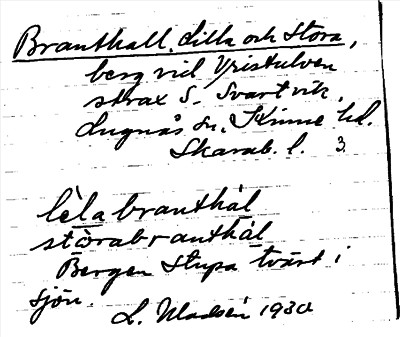 Branthall, Lilla och Stora,
berg vid Yristulven
strax S. Svartvik,
Lugnås sn. Kinne hd.
Skarab. l. 3
lèla branthål
stòrabranthål
Bergen stupa tvärt i
sjön.
L. Madsén 1930